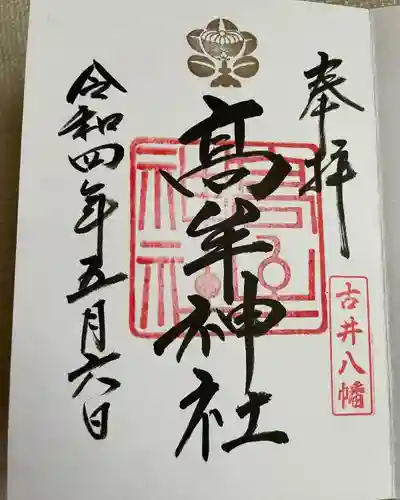 奉拝
古井八幡
高牟神社
令和四年五月六日